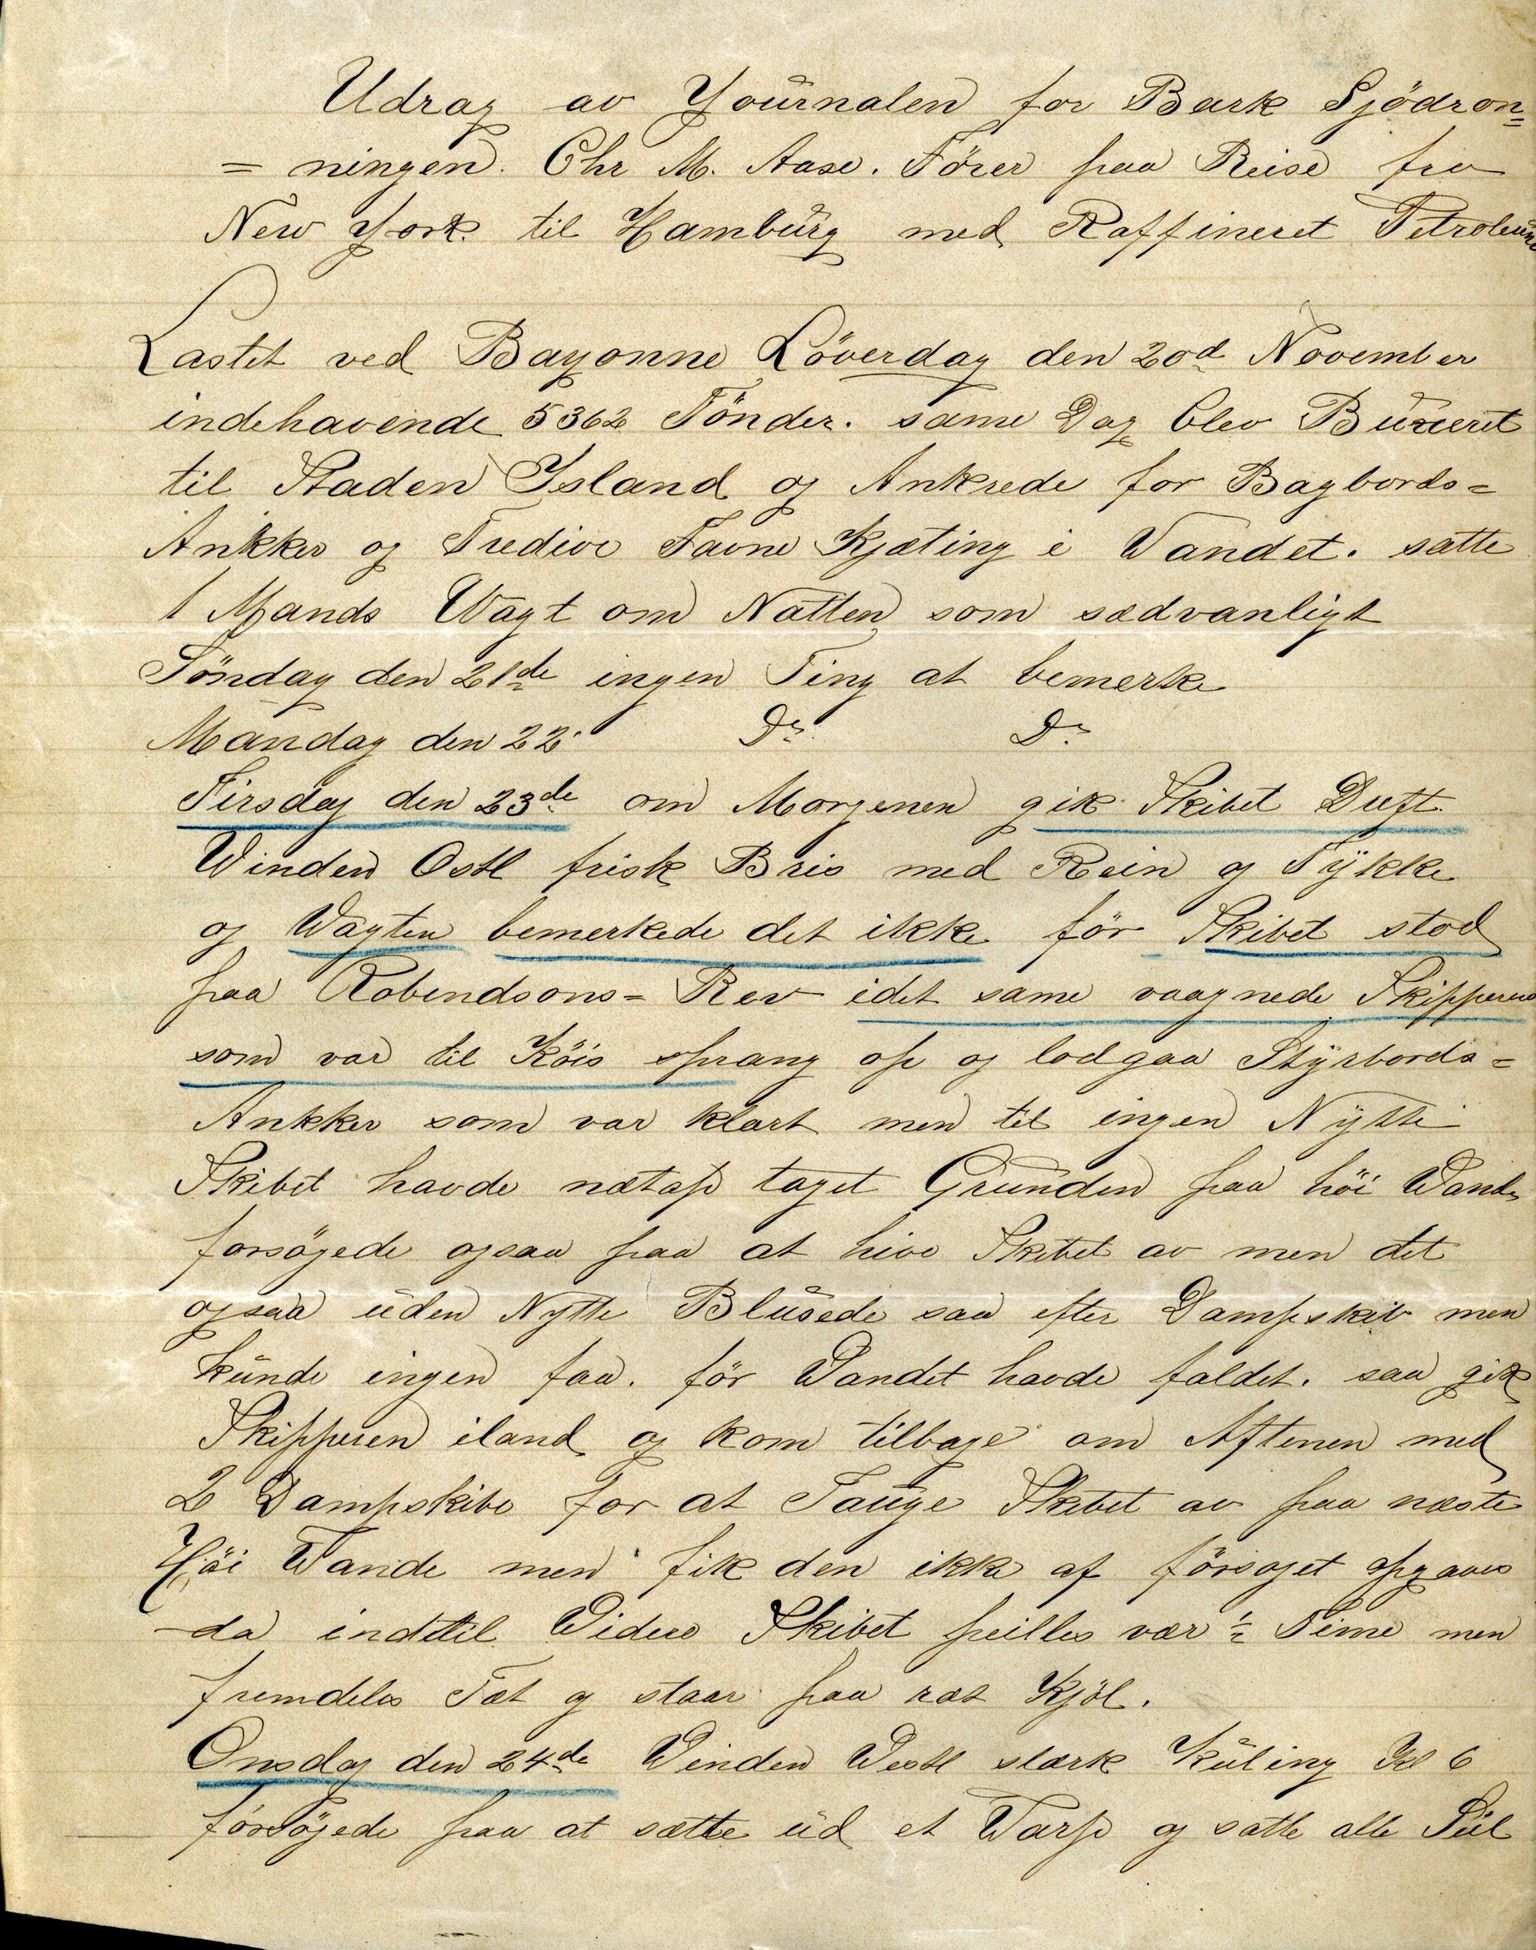 Udrag av Yournalen for Bark Sjödron=
=ningen. Chr M. Aase. Fører paa Reise fra
New York til Hamburg med Raffineret Petroleum
Lastet ved Bayonne Löverdag den 20d November
indehavende 5362 Tönder. same Dag blev Buxeret
til Staden Island og Ankrede for Bagbords=
Ankker og Tredive Favne Kjæting i Vandet. satte
1 Mands Vagt om Natten som sædvanligt
Söndag den 21de ingen Ting at bemerke
Mandag den 22. Do. Do.
Tirsdag den 23de om Morgenen gik Skibet Drift
Vinden Ostl frisk Bris med Rein og Tykke
og Vagten bemerkede det ikke för Skibet stod
paa Robendsons=Rev idet same vaagnede Skipperen
som var til Köis sprang op og lod gaa Styrbords=
Ankker som var klart men til ingen Nytte
Skibet havde netop taget Grunden paa höi Vande
forsögede ogsaa paa at hive Skibet av men det
ogsaa uden Nytte Blusede saa efter Dampskib men
kunde ingen faa. för Vandet havde faldet. saa gik
Skipperen iland og kom tilbage om Aftenen med
2 Dampskibe for at Tauge Skibet av paa næste
Höi Vande men fik den ikke af försøget opgaves
da indtil Videre Skibet peilles vær ½ Time men
fremdeles Tæt og staar paa ræt Kjöl.
Onsdag den 24de Vinden Vestl stærk Kuling Kl 6
försögede paa at sætte ud et Varp og satte alle Seil